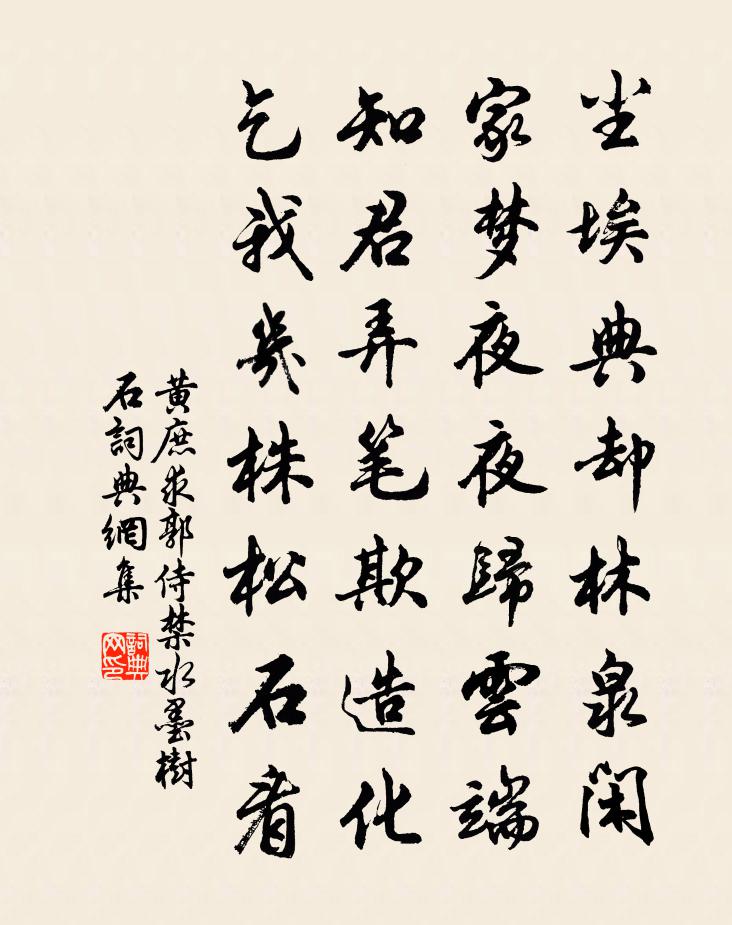 尘埃典却林泉闲
家梦夜夜歸雲端
知君弄笔欺造化
乞我幾株松石看
黄庶求郭侍禁水墨樹
石詞典網集
詞典
网印